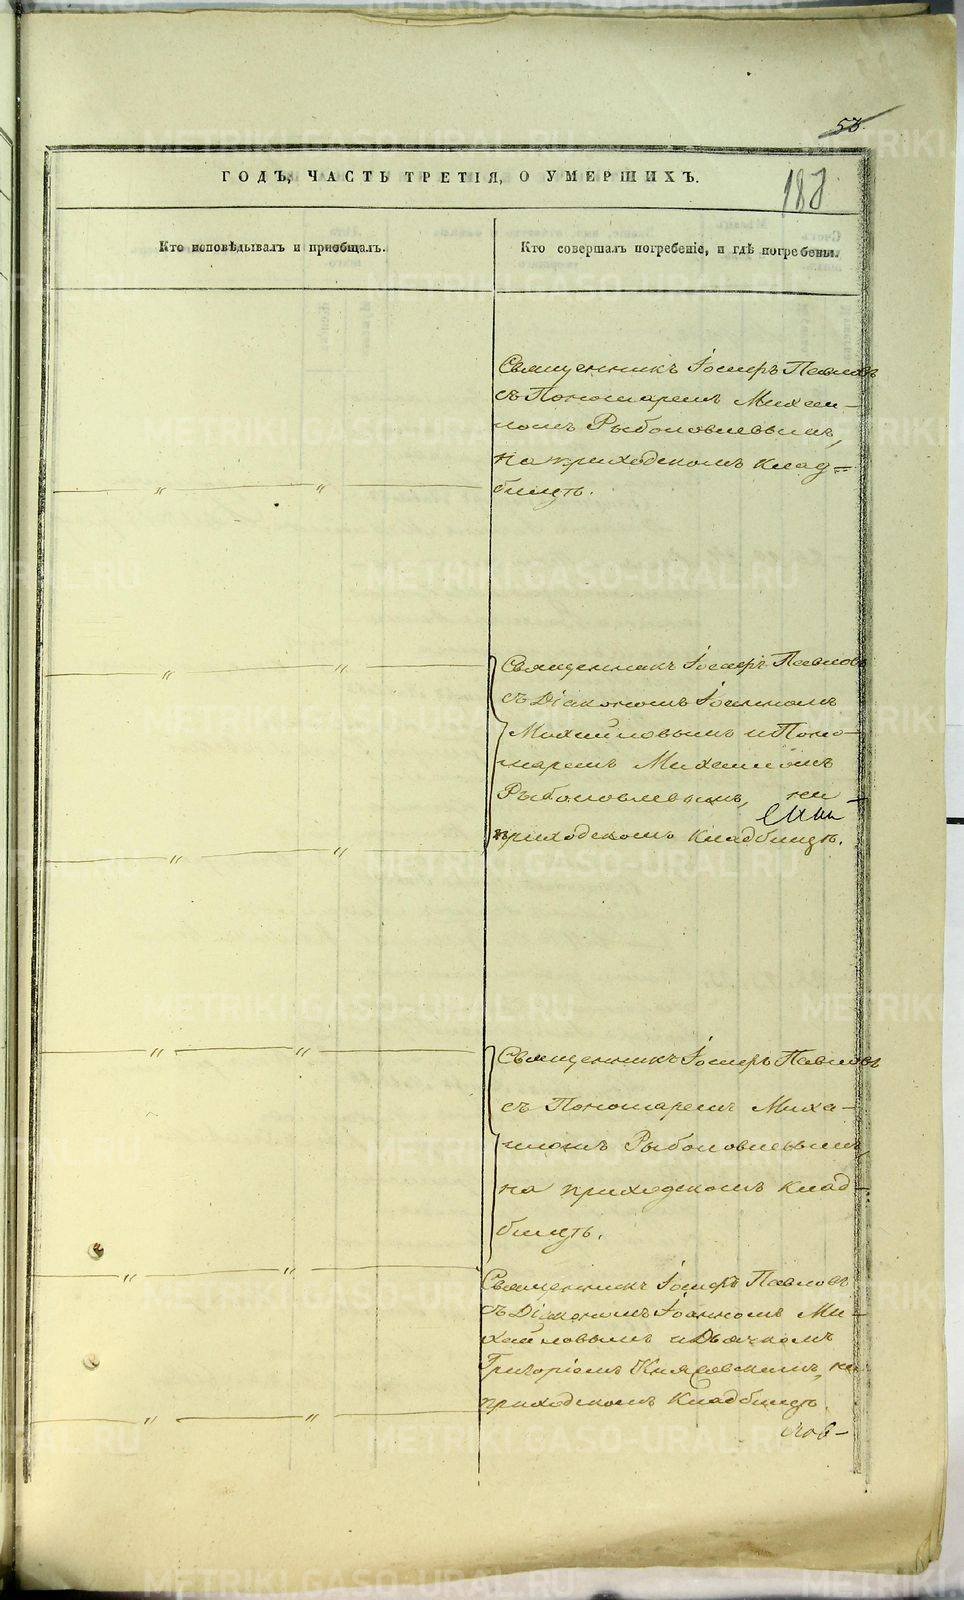 53.
ГОДЪ, ЧАСТЬ ТРЕТІЯ, О УМЕРШИХЪ.
188
Кто исповѣдывалъ и пріобщалъ.
Кто совершалъ погребеніе, и гдѣ погребены.
Священникъ Іосифъ Павловъ
съ Пономаремъ Михаи-
ломъ Рыболовлевымъ,
на приходскомъ клад=
бищѣ.
Священникъ Іосифъ Павловъ
съ Діакономъ Іоанномъ
Михайловымъ и Поно-
маремъ Михаиломъ
Рыболовлевымъ, на
приходскомъ Кладбищѣ.
Священникъ Іосифъ Павловъ
съ Пономаремъ Миха-
иломъ Рыболовлевымъ,
на приходскомъ клад-
бищѣ.
Священникъ Іосифъ Павловъ
съ Діакономъ Іоанномъ Ми-
хайловымъ и Дьячкомъ
Григоріемъ на
приходскомъ Кладбищѣ.
METRIKI.GASO-URAL.RU